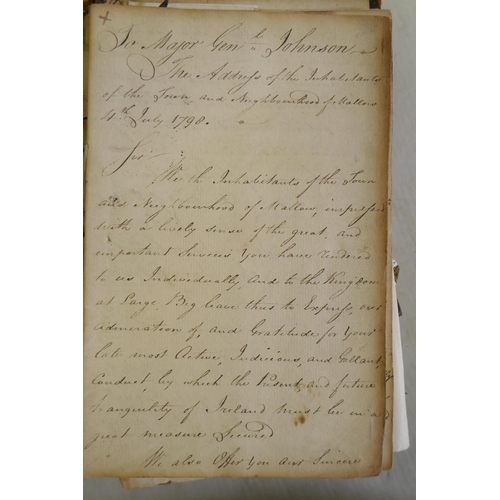 To Major Genl Johnson
The Address of the Inhabitants
of the Town and Neighbourhood of Mallow
4th July 1798.
Sir
We the Inhabitants of the Town
and Neighbourhood of Mallow, impressed
with a lively sense of the great, and
important Services You have rendered
to us Individually, and to the Kingdom
at Large Beg leave thus to Express, our
admiration of, and Gratitude for Your
late most Active, Judicious, and Gallant
Conduct, by which the Present, and future
tranquility of Ireland must be in a
great measure Secured
We also Offer You our Sincere